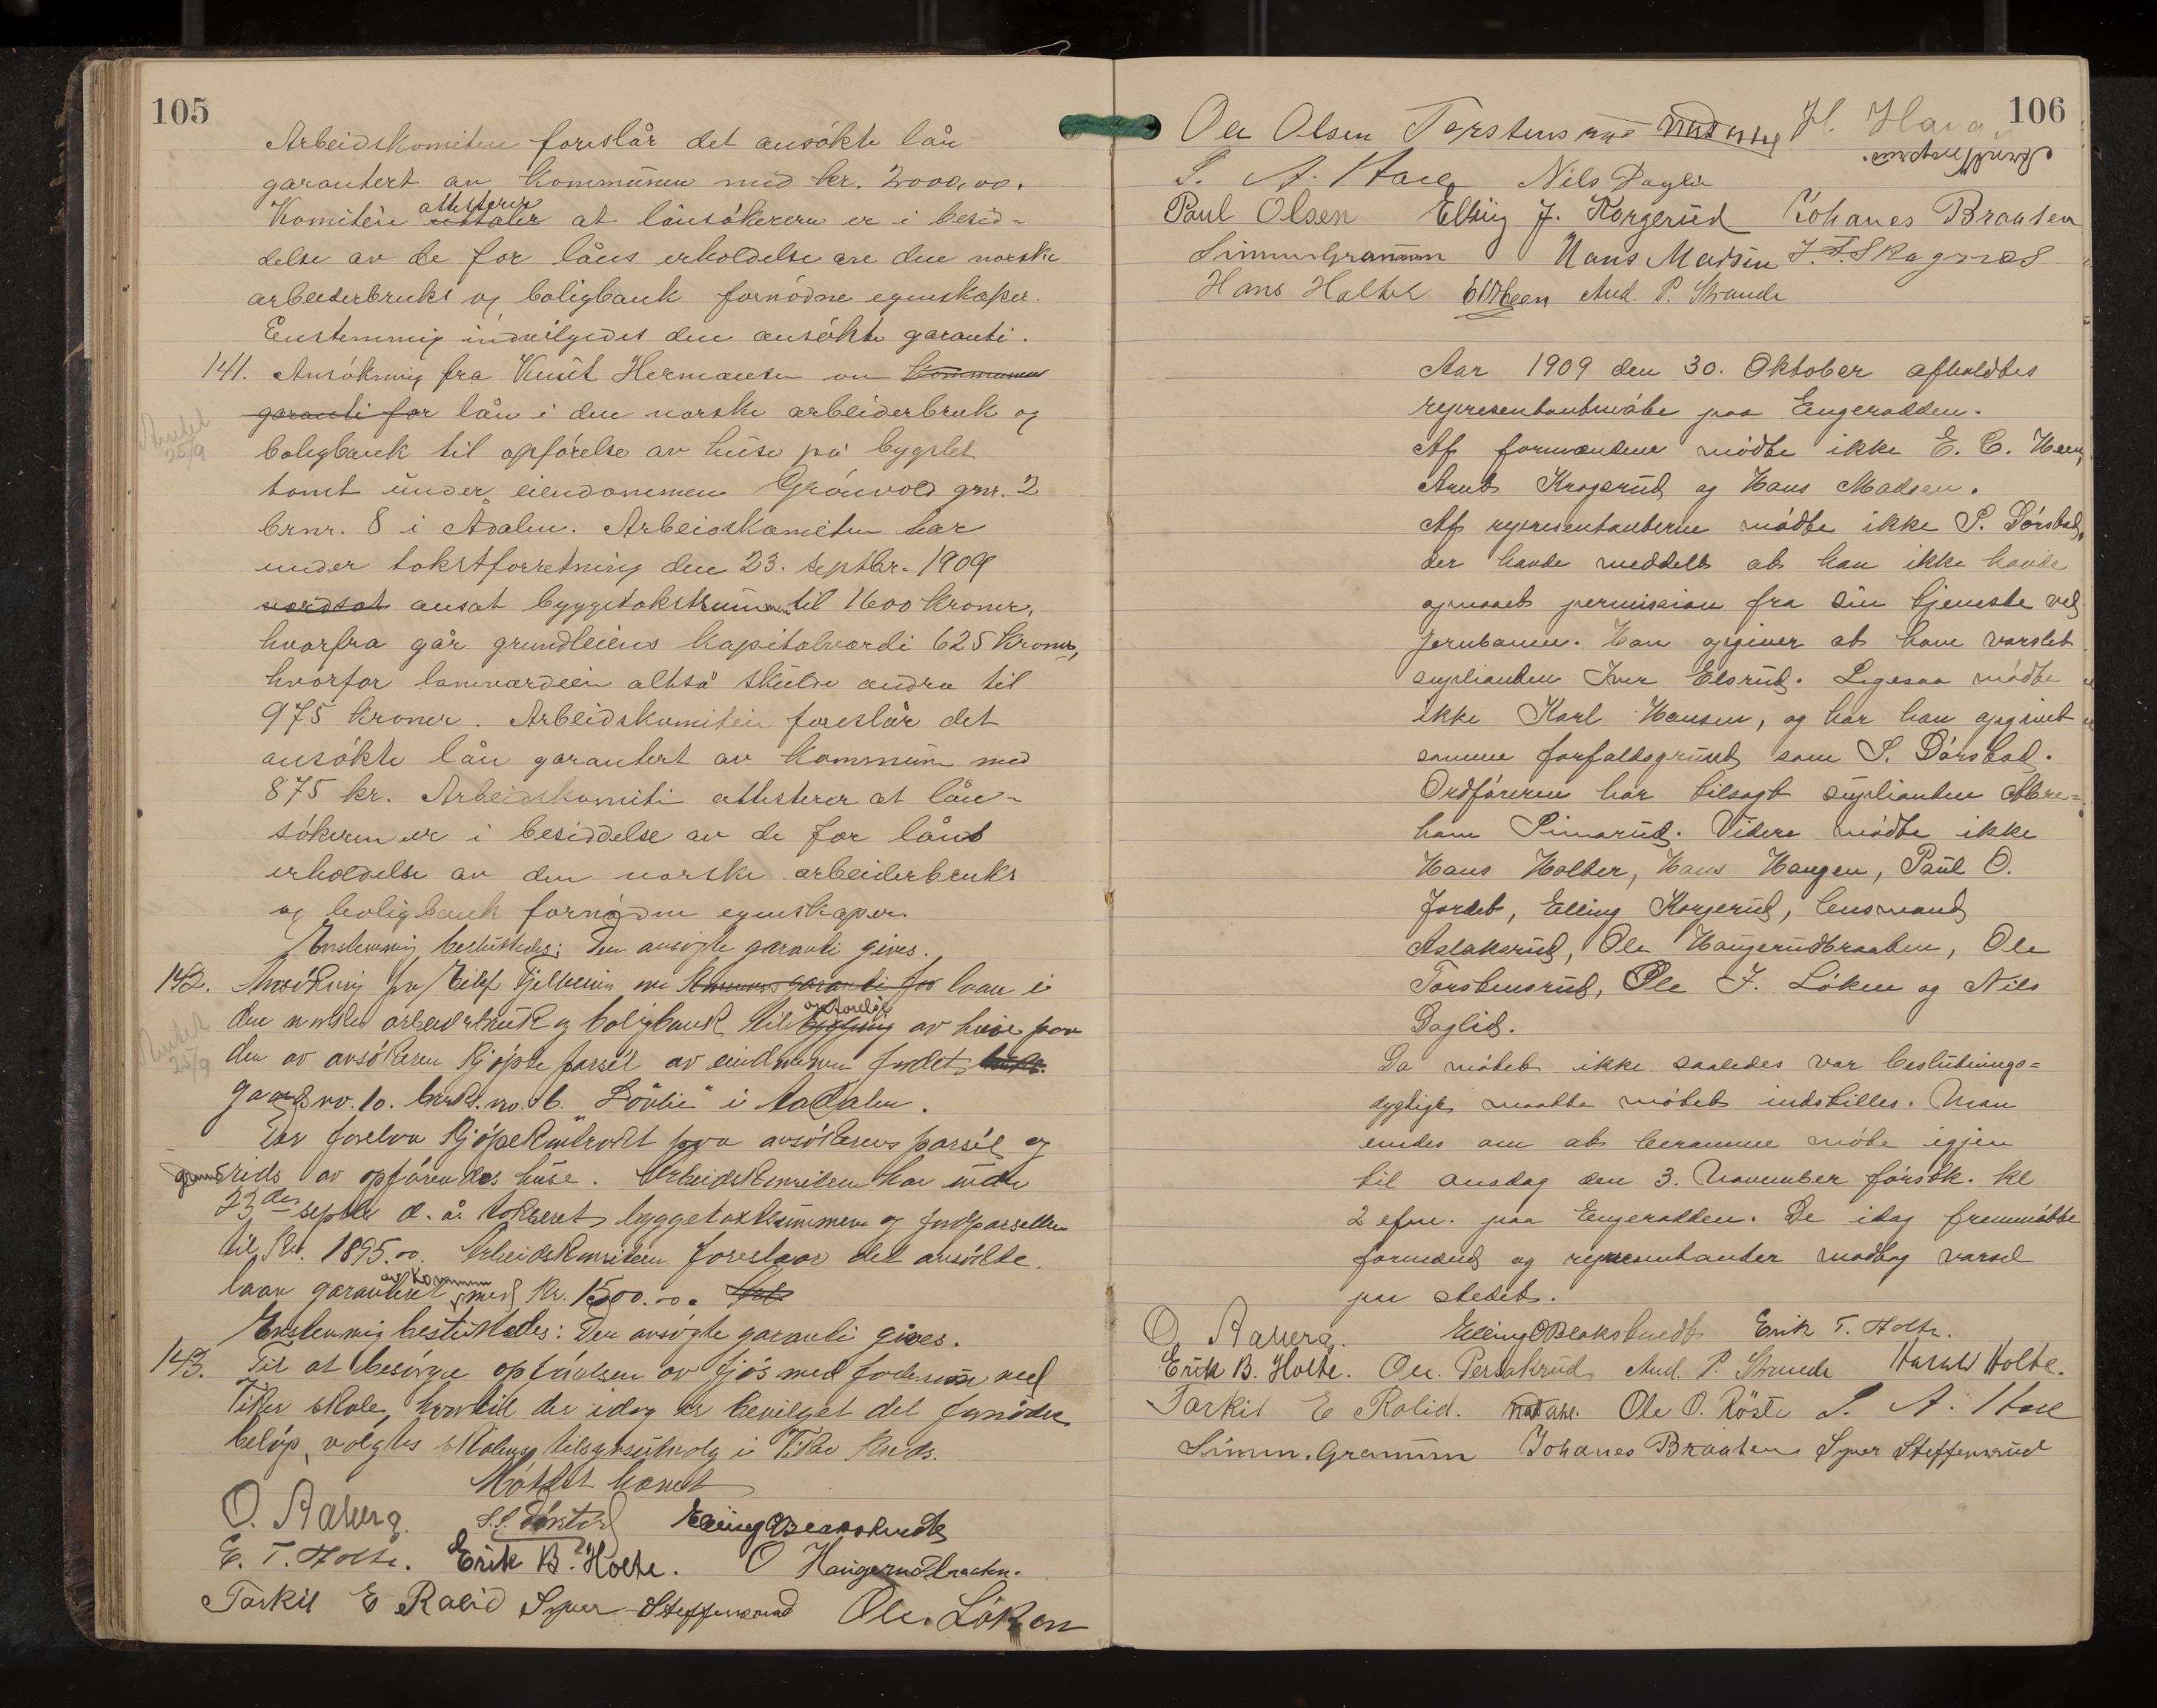 105
Arbeidskomiteen foreslår det ansökte lån
garantert av kommunen med kr. 2000,00.
Komitèen attesterer at lånsökeren er i besid-
delse av de for låns erholdelse av den norske
arbeiderbruks og boligbank fornödne egenskaper.
Enstemmig indvilgedes den ansökte garanti.
141. Ansökning fra Knut Hermansen om kommunens
garanti for lån i den norske arbeiderbruk og
boligbank til opförelse av huse på bygslet
tomt under eiendommen Grönvold gnr. 2
brnr. 8 i Ådalen. Arbeidskomiteen har
under takstforretning den 23. septbr. 1909
værdsat ansat byggetakstsummen til 1600 kroner,
hvorfra går grundleiens kapitalværdi 625 kroner,
hvorfor lånværdien altså skulde andra til
975 kroner. Arbeidskomiteen foreslår det
ansökte lån garantert av kommunen med
875 kr. Arbeidskomiteen attesterer at lån-
sökeren er i besiddelse av de for låns
erholdelse av den norske arbeiderbruks
og boligbank fornödne egenskaper.
Enstemmig besluttedes: Den ansögte garanti gives.
142. Ansökning fra Eilif Fjeldheim om kommunens garanti for laan i
den norske arbeiderbruk og boligbank til opförelse av huse paa
den av ansökeren kjöpte parsel av eiendommen Jordet
gaards no. 10. bruks. no. 16. "Lövlie" i Aadalen.
Der forelaa kjöpekontrakt paa ansökerens parsel og
grundrids av opförendes huse. Arbeidskomiteen har under
23de septbr d. å. takseret byggetakstsummen og jordparsellen
til Kr. 1895.00. Arbeidskomiteen foreslaar det ansökte
laan garanteret av kommunen med kr. 1500.00.
Enstemmig besluttedes: Den ansögte garanti gives.
143. Til at besörge opförelsen av fjös med foderrum ved
Viker skole, hvortil der idag er bevilget det fornödne
belöp, valgtes skolens tilsynsutvalg i Viker kreds.
Mötet hævet
O. Aaberg. S. S. Dörstad Elling O Blakstvedt
E. T. Holte. Erik B. Holte. O Haugerudbraaten.
Tarkil E Rolid Syver Steffensrud Ole. Löken
Andet
25/9
Andet
25/9
106
Ole Olsen Torstensrud H. Haugen
S. A. Hoel Nils Daglid
Paul Olsen Elling J. Kargerud Johanes Braaten
Simen Granum Hans Madsen J. F. Skagnæs
Hans Holter E C Heen And. P. Strande
Aar 1909 den 30. Oktober afholdtes
representantmöte paa Engerodden.
Af formændene mödte ikke E. C. Heen,
Arnt Krogsrud og Hans Madsen.
Af representanterne mödte ikke S. Dörstad,
der havde meddelt at han ikke havde
opnaaet permission fra sin tjeneste ved
jernbanen. Han opgiver at have varslet
suplianten Iver Elsrud. Ligesaa mödte
ikke Karl Hansen, og har han opgivet
samme forfaldsgrund som S. Dörstad.
Ordföreren har tilsagt suplianten Abra=
ham Simarud. Videre mödte ikke
Hans Holter, Hans Haugen, Paul O.
Jordet, Elling Kargerud, lensmand
Aslaksrud, Ole Haugerudbraaten, Ole
Torstensrud, Ole J. Löken og Nils
Daglid.
Da mötet ikke saaledes var beslutnings=
dygtigt maatte mötet indstilles. Man
enedes om at beramme möte igjen
til onsdag den 3. November förstk. kl
2 efm. paa Engerodden. De idag fremmötte
formænd og representanter modtog varsel
paa stedet.
O. Aaberg. Elling O Blakstvedt Erik T. Holte.
Erik B. Holte. Ole. Persakrud And. P. Strande Harald Holte.
Tarkil E Rolid. Ole O. Röste S. A. Hoel
Simen. Granum Johanes Braaten Syver Steffensrud